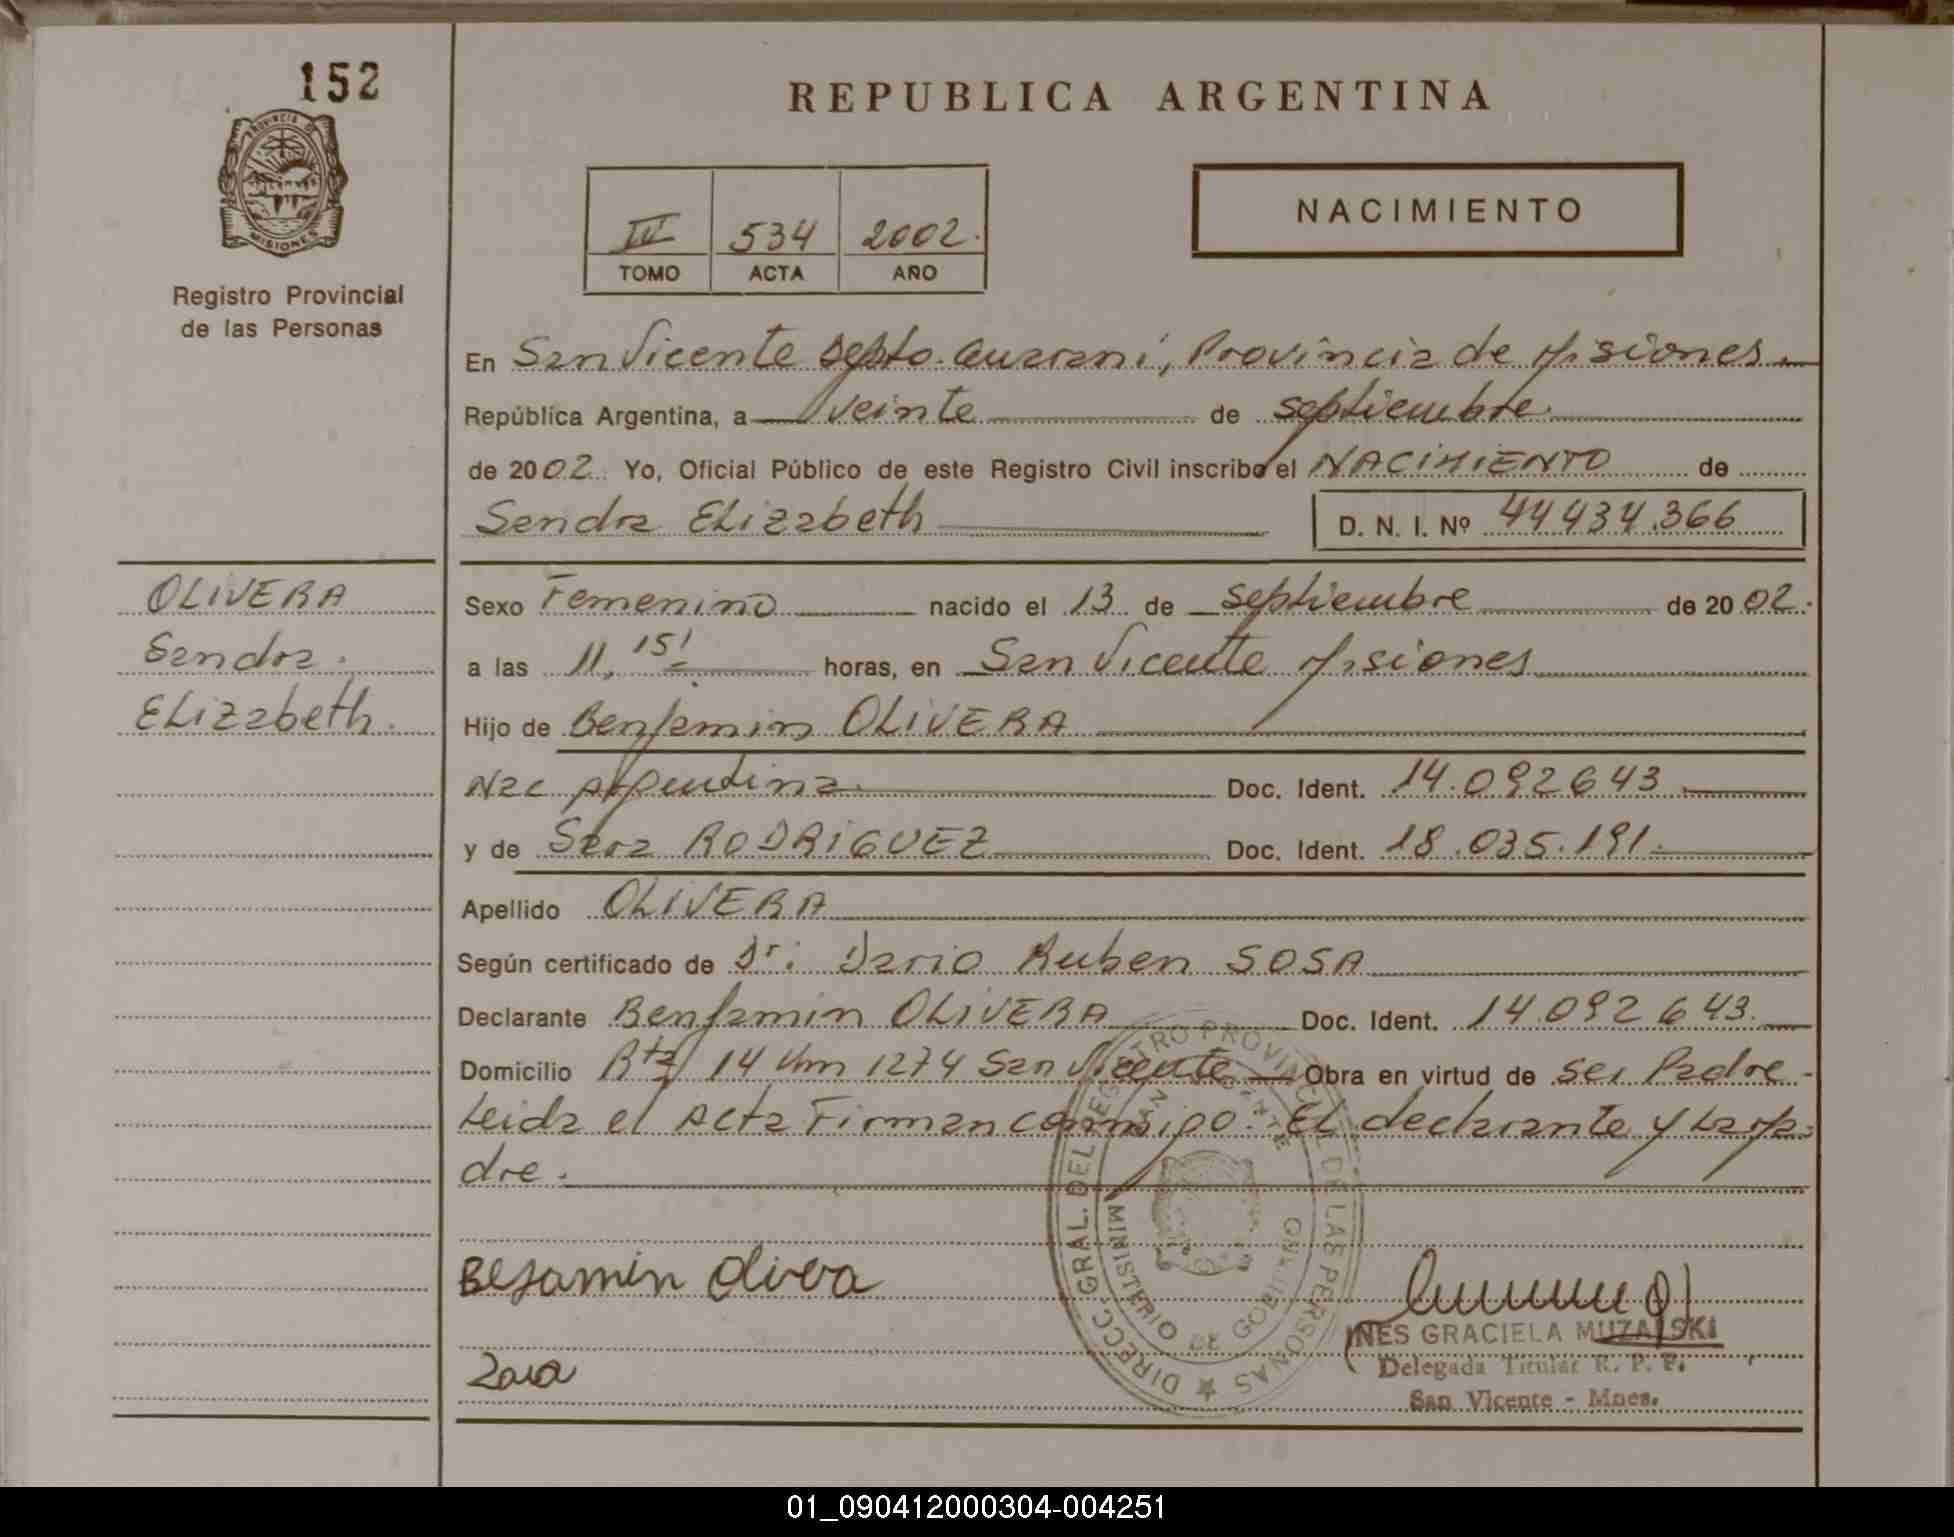 152
PROVINCIA DE
MISIONES
Registro Provincial
de las Personas
REPUBLICA ARGENTINA
NACIMIENTO
IV 534 2002.
TOMO ACTA AÑO
En San Vicente Depto. Guarani, Provincia de Misiones.
República Argentina, a veinte de septiembre
de 2002. Yo, Oficial Público de este Registro Civil inscribo el NACIMIENTO de
Sandra Elizabeth D. N. I. Nº 44434.366
OLIVERA
Sandra.
Elizabeth.
Sexo Femenino nacido el 13 de septiembre de 2002.
a las 11, 15' horas, en San Vicente Misiones
Hijo de Benjamin OLIVERA
Nac Argentina. Doc. Ident. 14.092643
y de Sara RODRIGUEZ Doc. Ident. 18.035.191.
Apellido OLIVERA
Según certificado de Dr: Dario Ruben SOSA
Declarante Benjamin OLIVERA Doc. Ident. 14.092643.
Domicilio Rta 14 Km 1274 San Vicente Obra en virtud de ser Padre-
Leida el Acta Firman conmigo. El declarante y La Ma-
dre.
DIRECC. GRAL. DEL REGISTRO PROVINCIAL DE LAS PERSONAS
MINISTERIO DE GOBIERNO
SAN VICENTE
Besamin Olivera
Zara
INES GRACIELA MUZALSKI
Delegada Titular R. P. P.
San Vicente - Mnes.
01_090412000304-004251